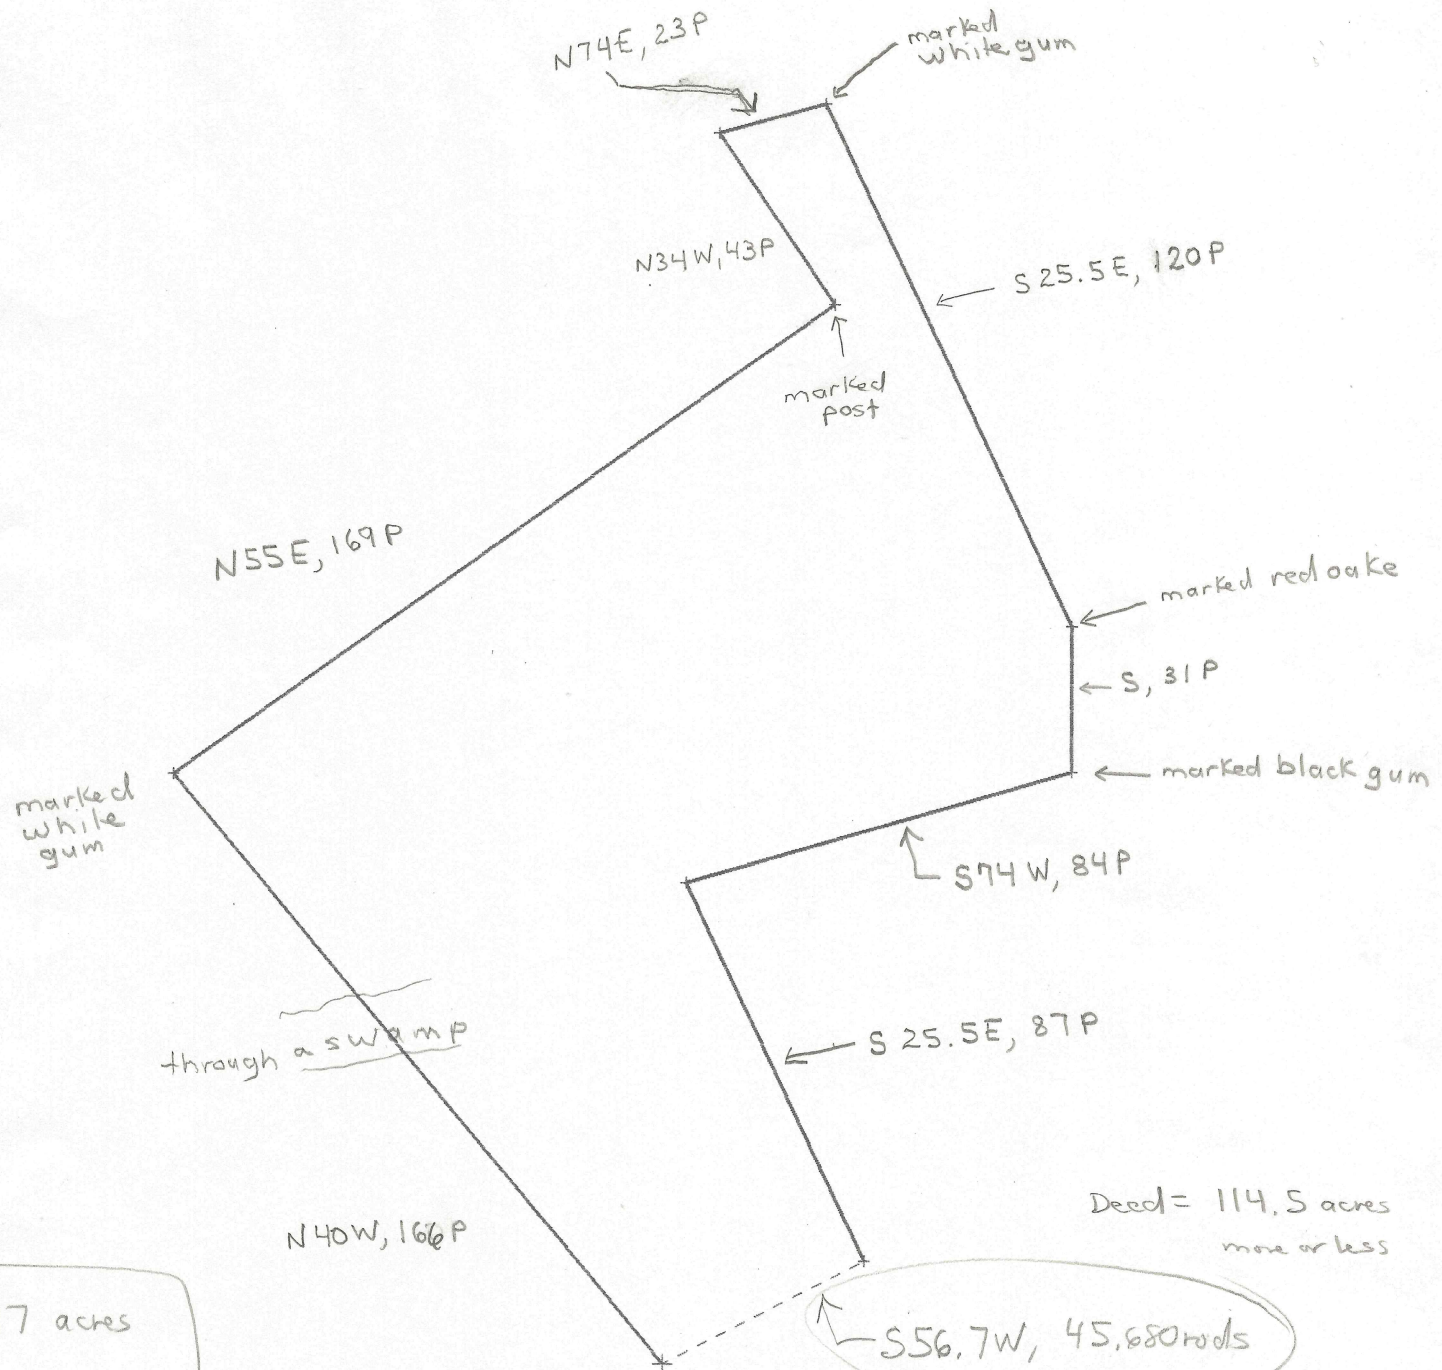 N74E, 23P
marked
white gum
N34W, 43P
S 25.5E, 120P
marked
post
N55E, 169P
marked red oake
S, 31P
marked black gum
marked
white
gum
S74W, 84P
through a swamp
S 25.5E, 87P
Deed = 114.5 acres
more or less
N40W, 166P
7 acres
S56.7W, 45.680 rods